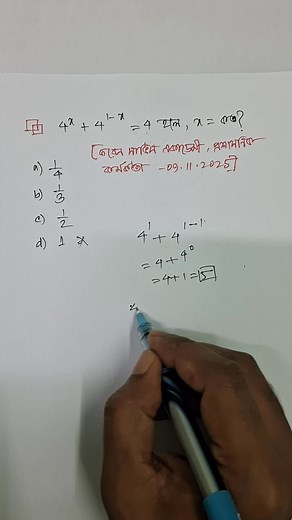 4^x + 4^{1-x} = 4 হলে, x = কত?
[ফরেন সার্ভিস একাডেমী, প্রশাসনিক
কর্মকর্তা - 09.11.2025]
a) 1/4
b) 1/3
c) 1/2
d) 1 ×
4^1 + 4^{1-1}
= 4 + 4^0
= 4+1 = 5